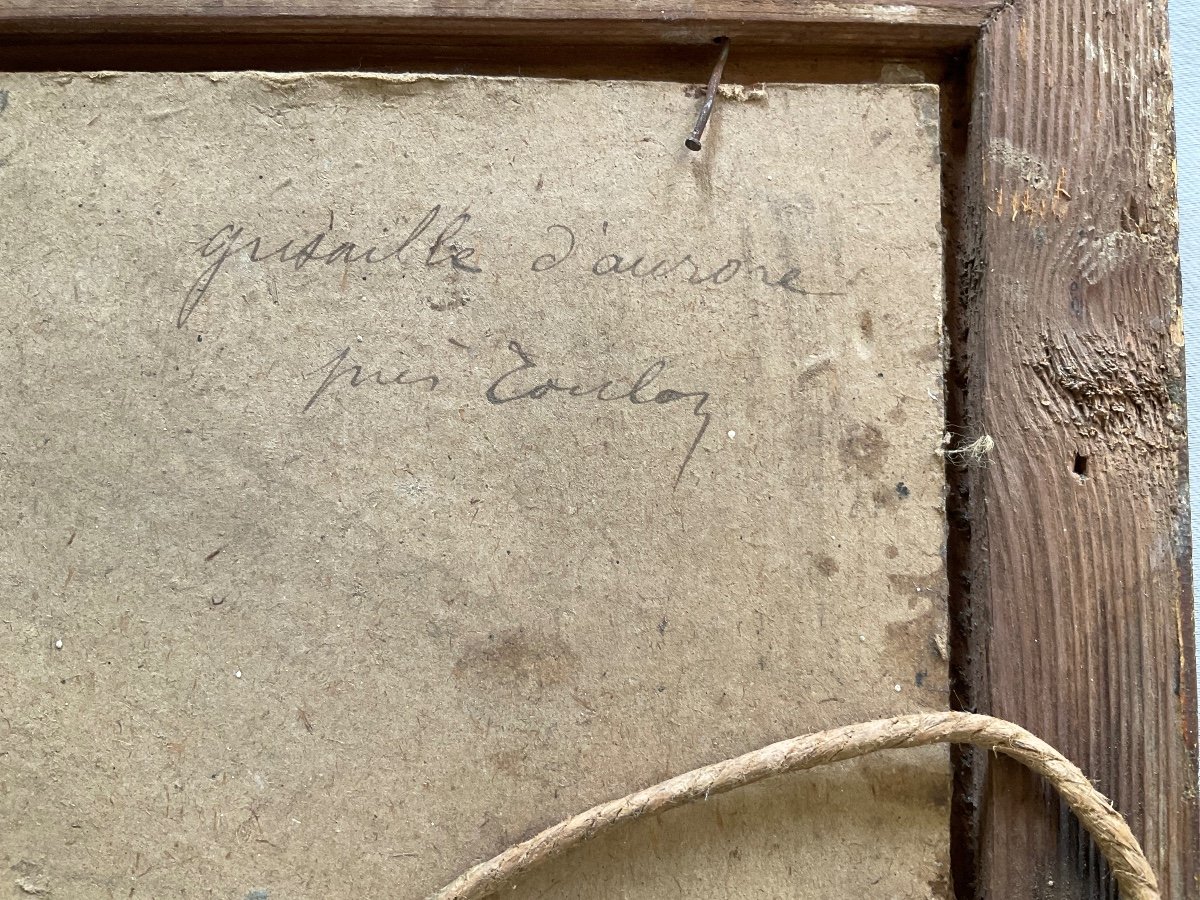 grisaille d'aurore
près Toulon